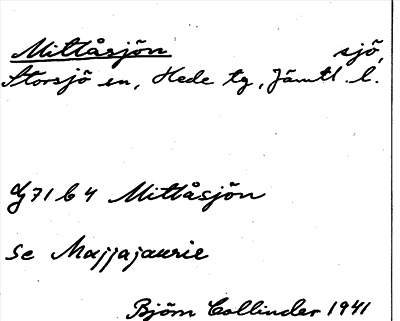 Mittåsjön sjö,
Storsjö sn, Hede tg, Jämtl. l.
Lg 71 b 4 Mittåsjön
se Majjajaurie
Björn Collinder 1941